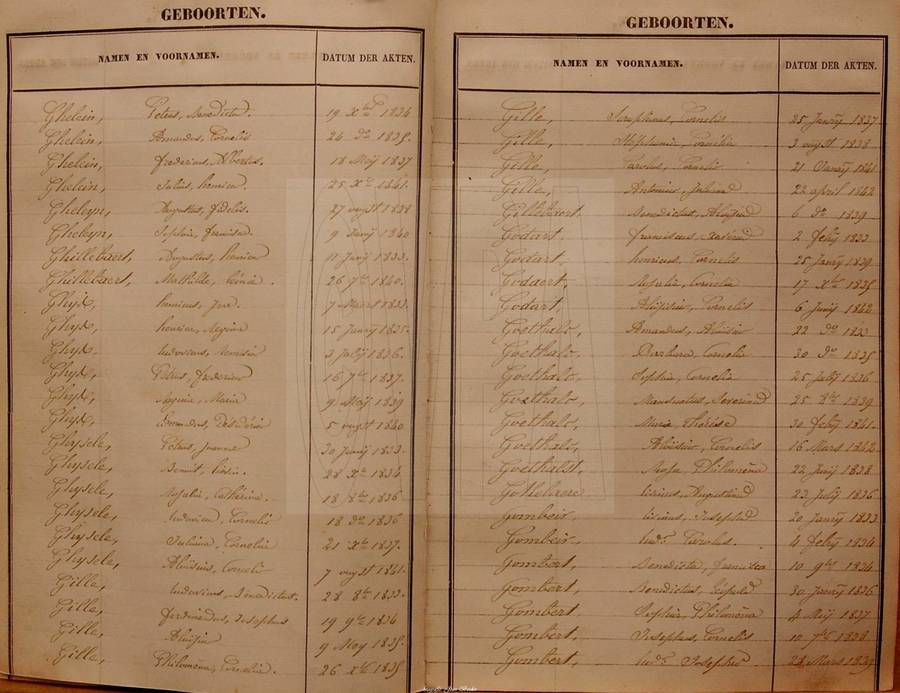 GEBOORTEN.
NAMEN EN VOORNAMEN. DATUM DER AKTEN.
Ghelein, Petrus, Benedictus. 19 Xber 1834
Ghelein, Amandus, Cornelis 24 do 1835.
Ghelein, fredericus, Albertus. 18 Meij 1837
Ghelein, Julius, henricus. 25 Xbr 1841.
Gheleyn, Augustus, fidelis. 27 augst 1838
Gheleyn, Sophia, 9 Junij 1840
Ghillebaert, Augustus, henricus 11 Junij 1833.
Ghillebaert, Mathilde, 26 7br 1840.
Ghyx, henricus, 7 Maart 1833.
Ghyx, Regina 15 Janrij 1835.
Ghyx, Ludovicus, 3 Julij 1836.
Ghyx, Petrus, fredericus 16 7br 1837.
Ghyx, Maria 9 Meij 1839
Ghyx, Désiderius 5 augst 1840
Ghysele, Petrus, Joannes 30 1833.
Ghysele, Benoit, 28 Xbr 1834
Ghysele, Rosalia, Catharina. 18 8br 1836
Ghysele, Ludovicus, Cornelis 18 do 1836
Ghysele, Juliana, Cornelia 21 Xbr 1837.
Ghysele, Aloïsius, Cornelis 7 augst 1841.
Gille, Ludovicus, Benedictus. 28 8br 1833.
Gille, Ferdinandus, Josephus 19 9br 1834
Gille, Aloïsia 9 Mey 1835.
Gille, Philomena, Cornelia. 26 Xbr 1835
GEBOORTEN.
NAMEN EN VOORNAMEN. DATUM DER AKTEN.
Gille, Seraphinus, Cornelis 25 Janrij 1837
Gille, Cornelia 3 augst 1838
Gille, Carolus, Cornelis 21 1841
Gille, Antonius, 22 april 1842
Gillebaert. Benedictus, 6 do 1839
Godart. franciscus, 2 febrij 1833
Godart, henricus, Cornelis 25 Janrij 1839
Godaert, Rosalia, Cornelia 17 Xbr 1835
Godart, Aloïsius, Cornelis 6 Junij 1842
Goethals, Amandus, Aloïsius 22 do 1833
Goethals, Barbara, Cornelia 30 do 1835
Goethals, Sophia, Cornelia 25 Julij 1836
Goethals, Mansuetus, Severinus 25 8br 1839
Goethals, Maria Thérèse 30 febrij 1841.
Goethals, Aloïsius, Cornelis 16 Mars 1842
Goethalst, Rosa, Philomena 22 Junij 1838
Gothebaere Livinus, Augustinus 23 Julij 1836
Gombeir, Livinus, Josephus 20 Janrij 1833
Gombeir, Ludc Carolus. 4 febrij 1834
Gombert, Benedictus, franciscus 10 9br 1834
Gombert, Benedictus, 30 Janrij 1836
Gombert Sophia, Philomena 4 Meij 1837
Gombert, Josephus, Cornelis 10 7br 1838
Gombert, Ludc Josephus 28 Mars 1839